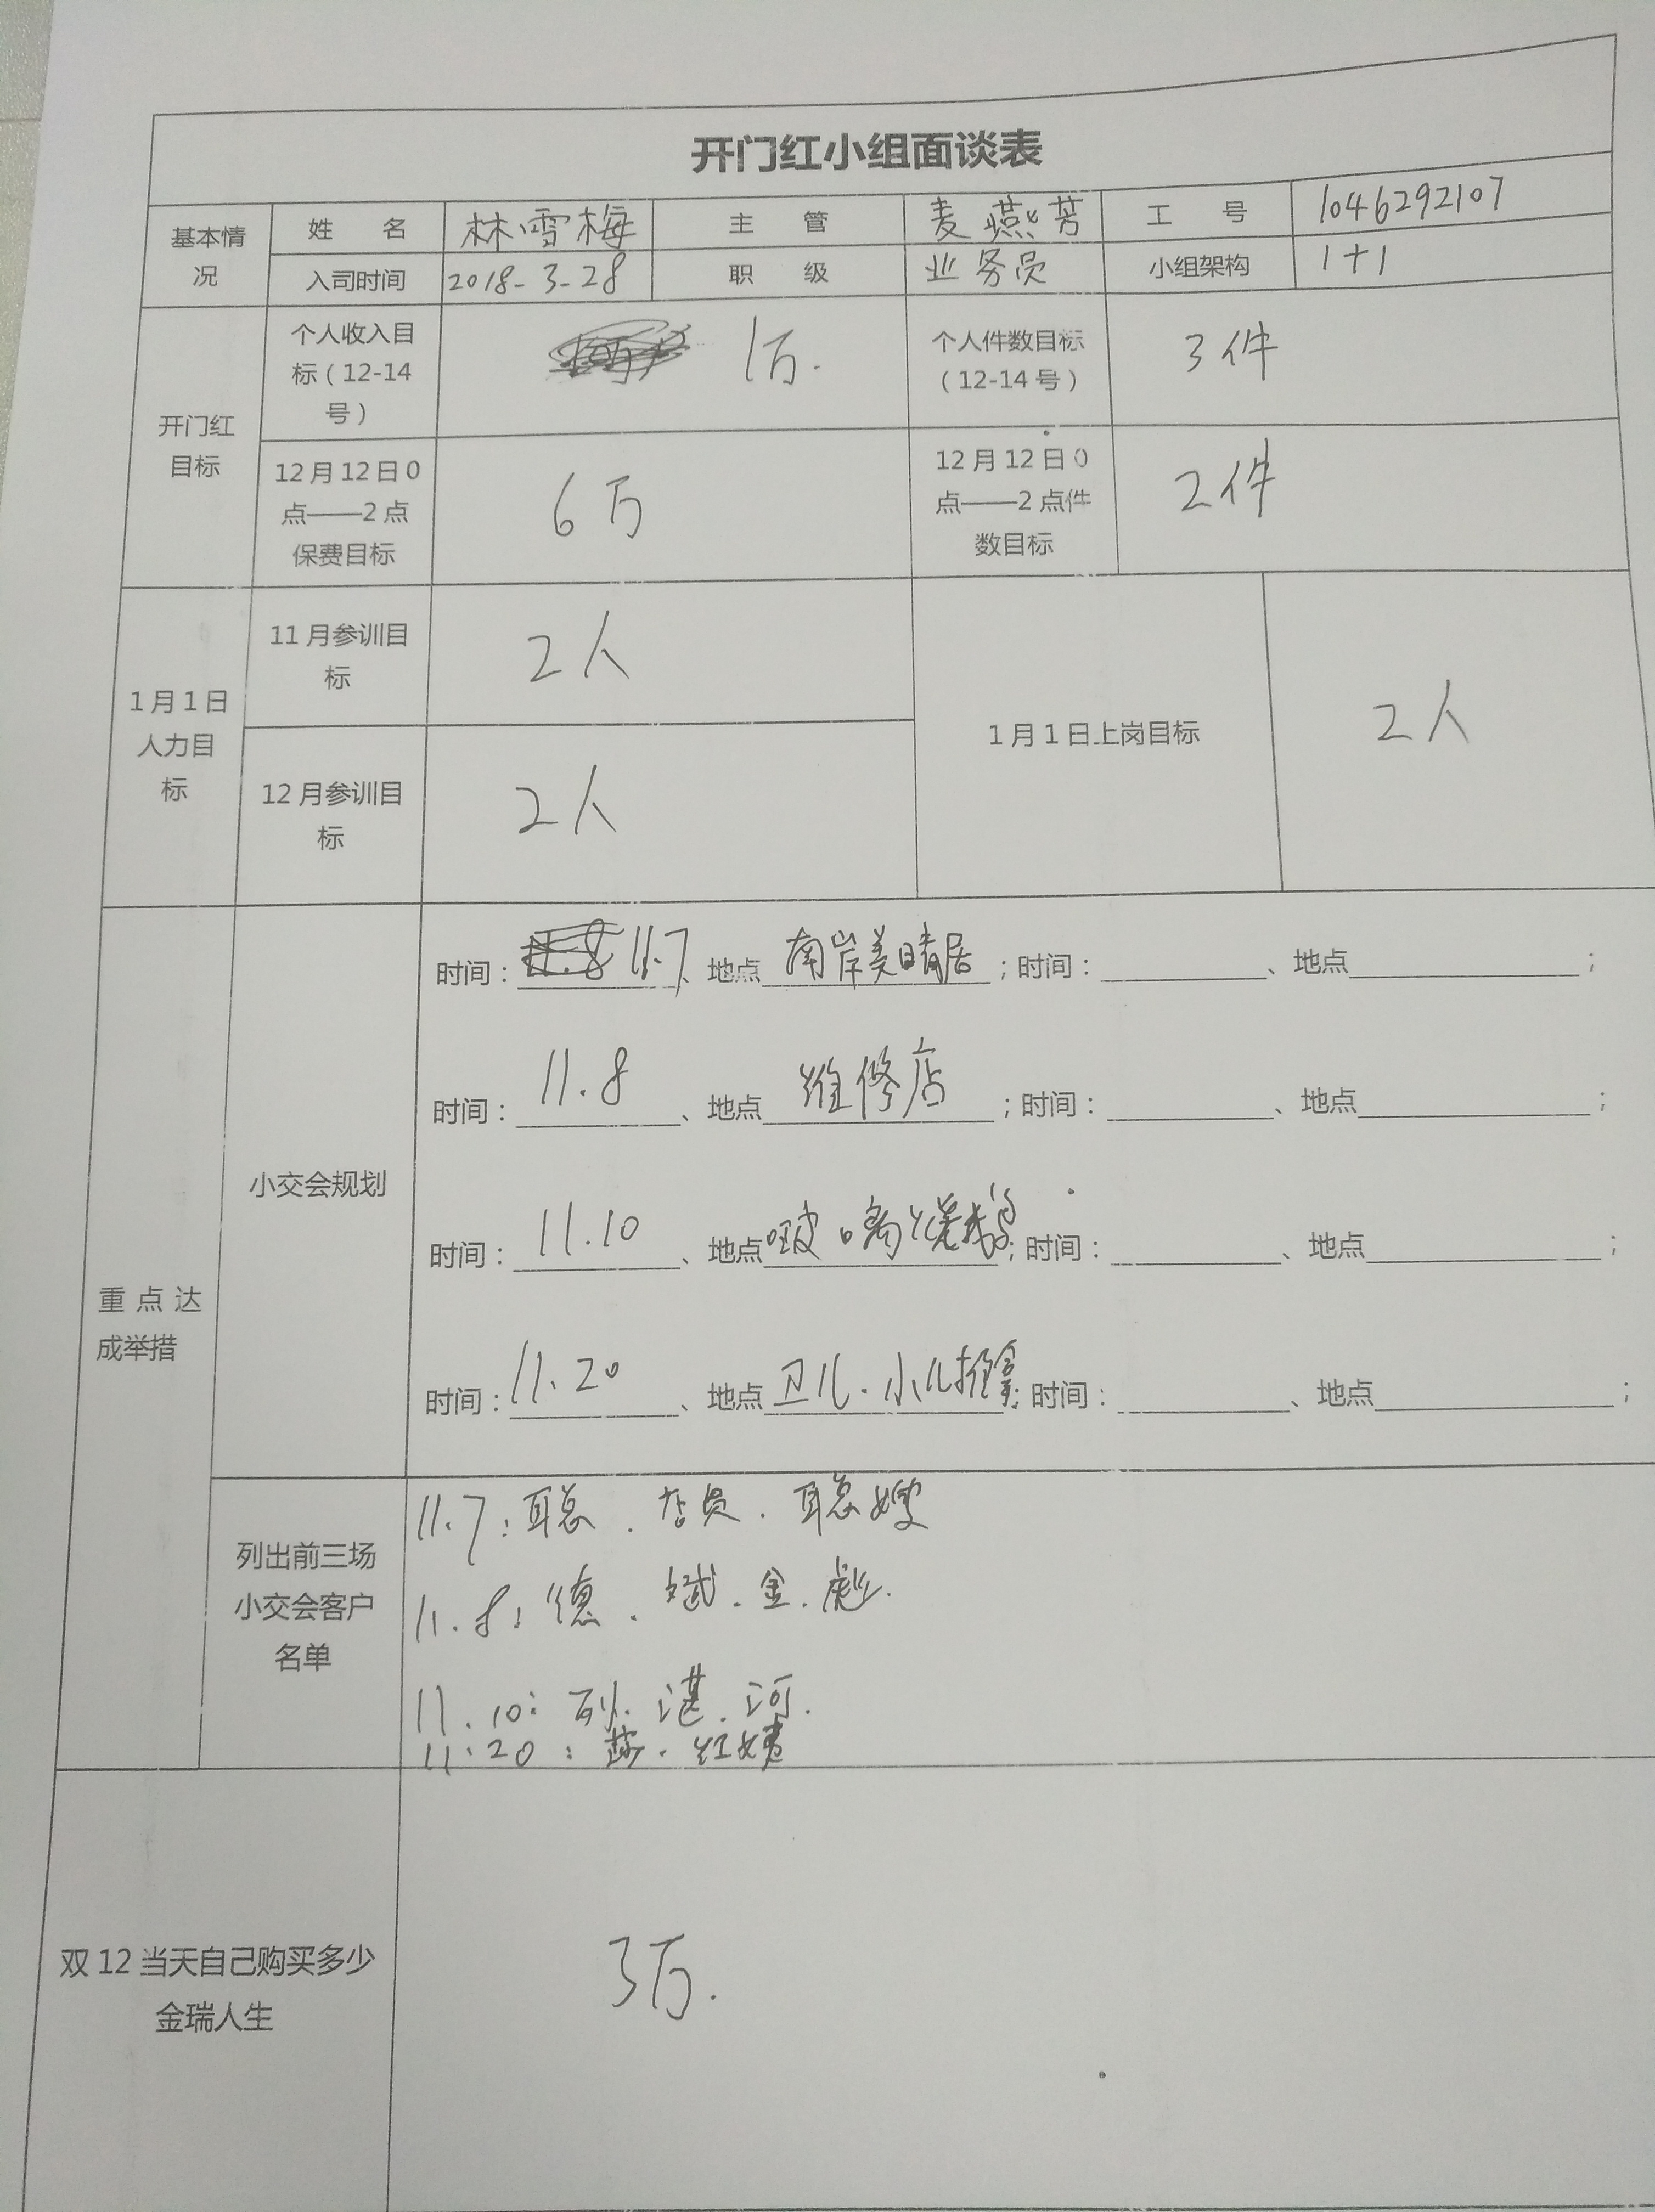 开门红小组面谈表
基本情况 姓 名 林雪梅 主 管 麦燕芳 工 号 1046292107
入司时间 2018-3-28 职 级 业务员 小组架构 1+1
开门红目标
个人收入目标（12-14号） 1万. 个人件数目标（12-14号） 3件
12月12日0点——2点保费目标 6万 12月12日0点——2点件数目标 2件
1月1日人力目标
11月参训目标 2人 1月1日上岗目标 2人
12月参训目标 2人
重点达成举措
小交会规划
时间：11.7、地点南岸美晴居；时间：、地点；
时间：11.8、地点维修店；时间：、地点；
时间：11.10、地点；时间：、地点；
时间：11.20、地点卫儿.小儿推拿；时间：、地点；
列出前三场小交会客户名单
11.7：聪.店员.聪嫂
11.8：德.斌.金.彪.
11.10：.湛.河.
11.20：.红
双12当天自己购买多少金瑞人生 3万.